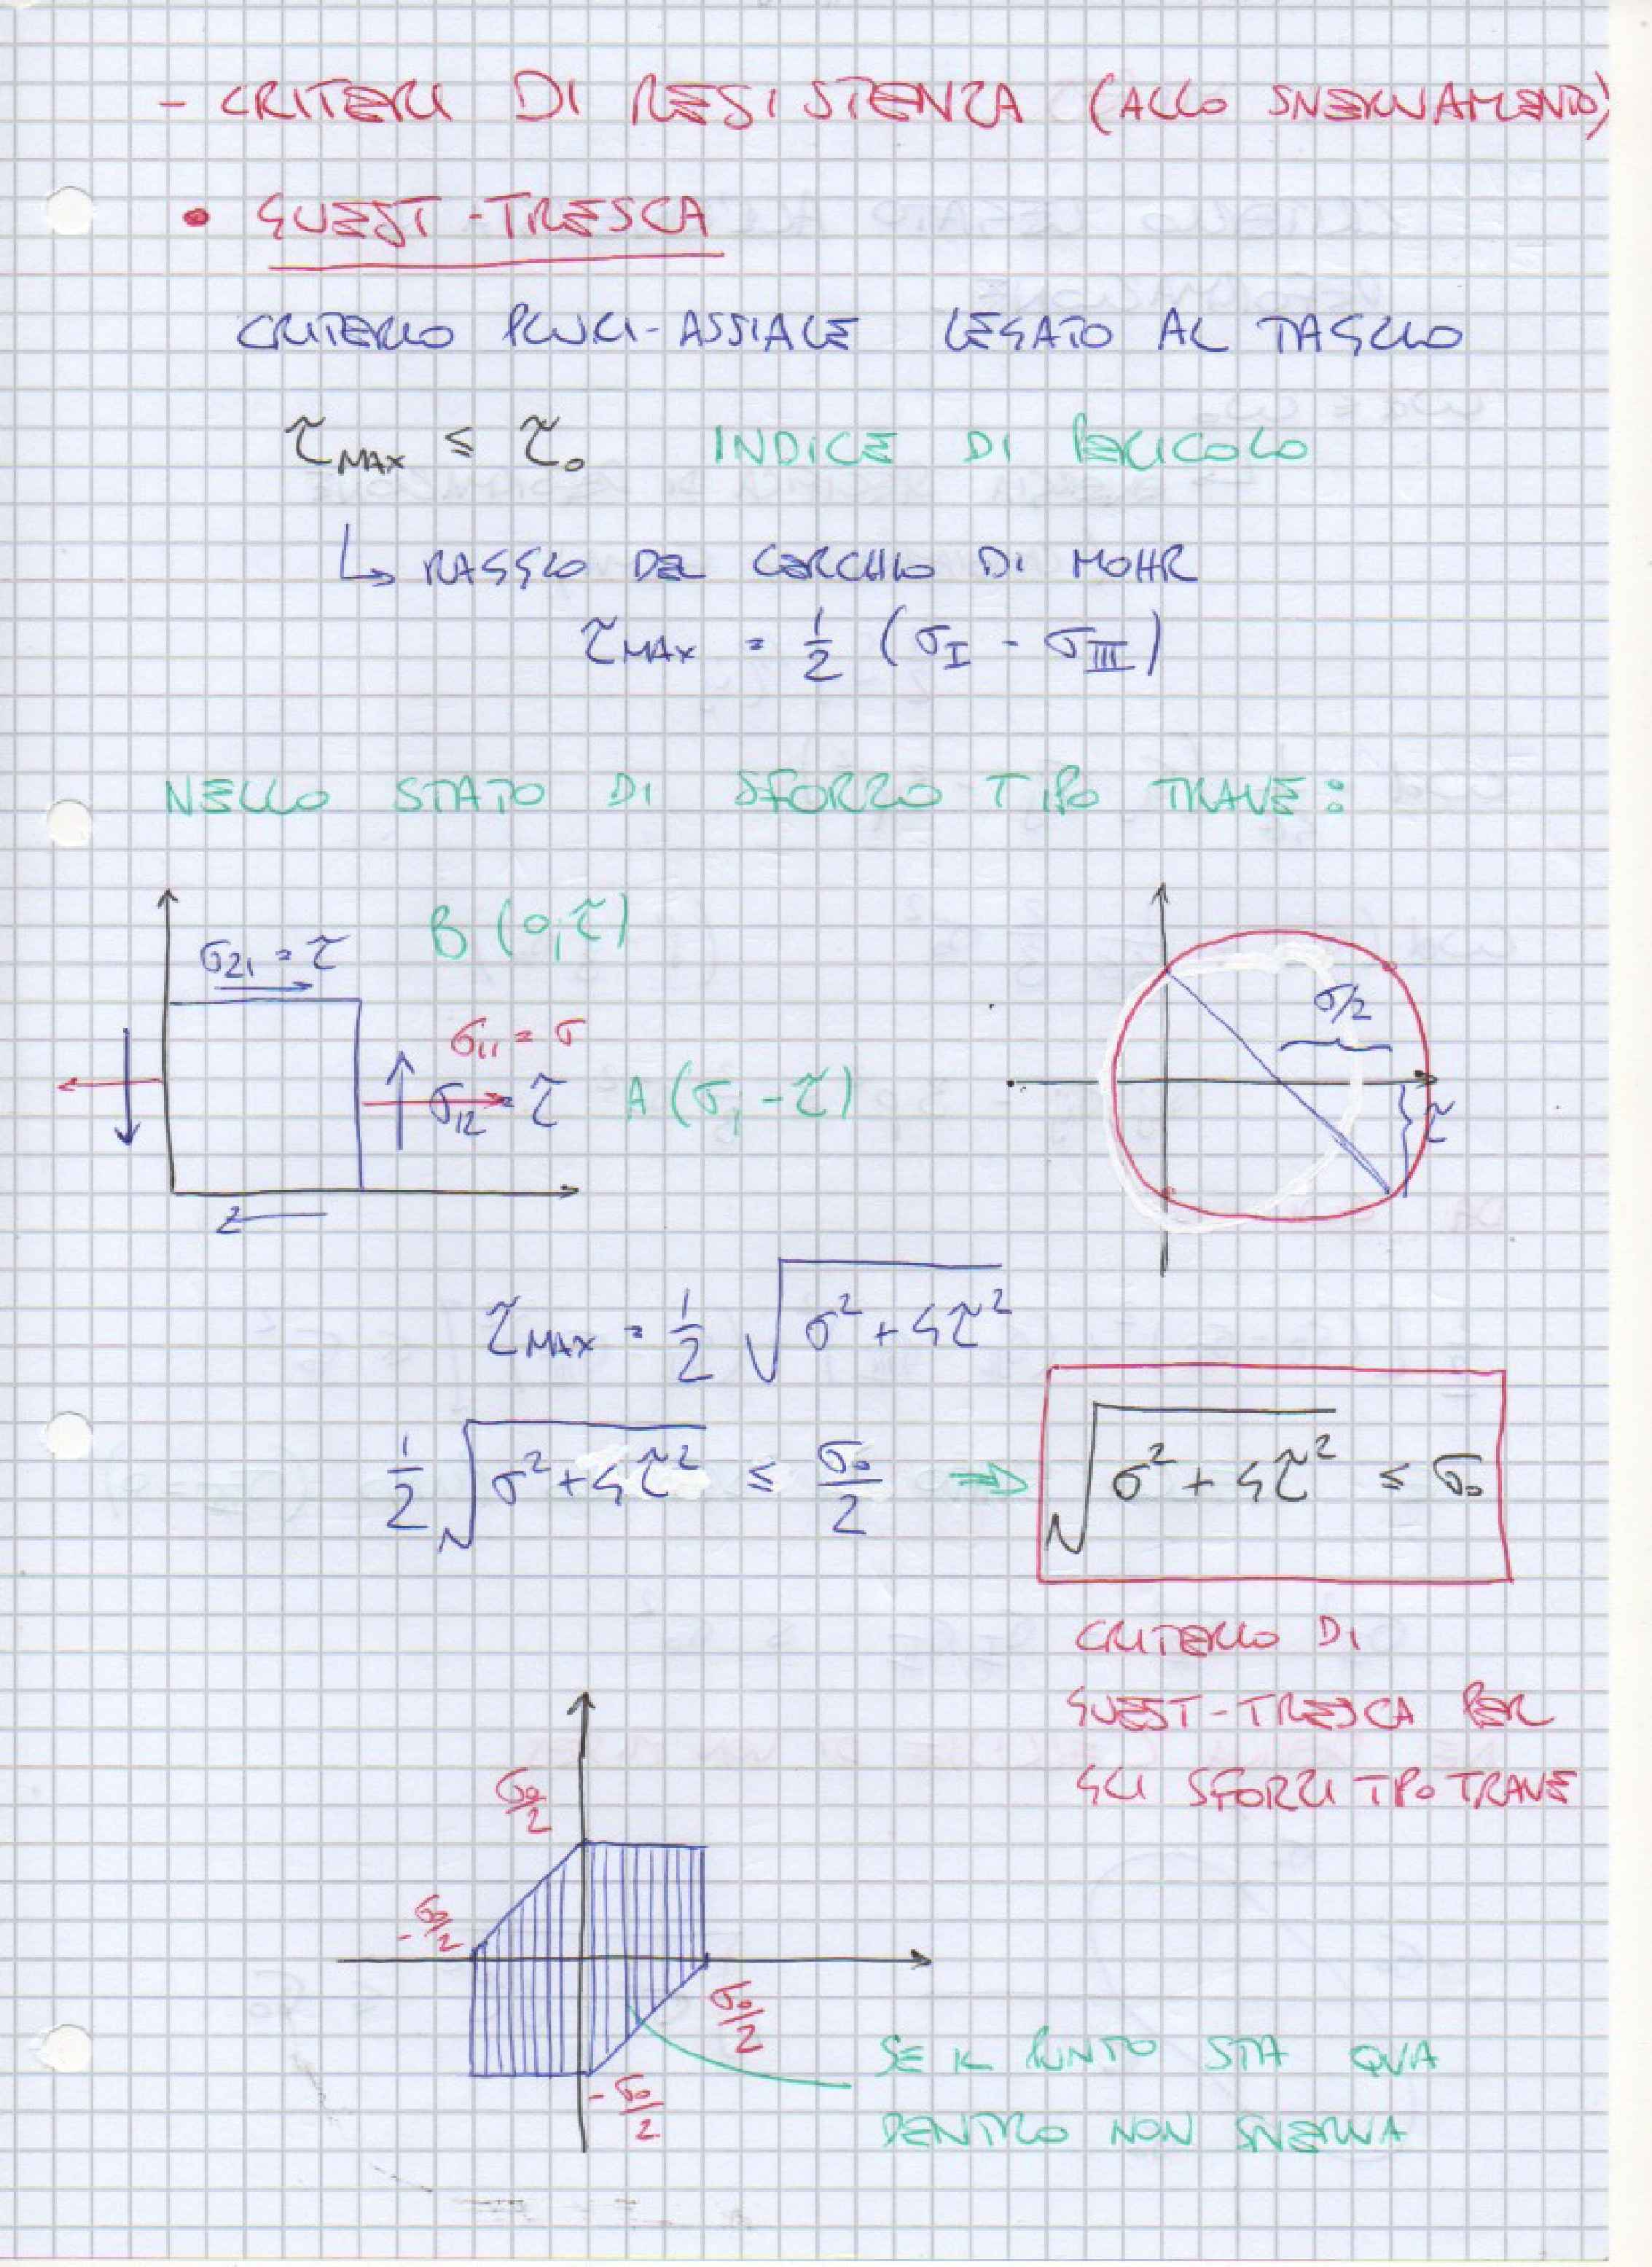 - CRITERI DI RESISTENZA (ALLO SNERVAMENTO)
• GUEST-TRESCA
CRITERIO PLURI-ASSIALE LEGATO AL TAGLIO
τMAX ≤ τ₀ INDICE DI PERICOLO
↳ RAGGIO DEL CERCHIO DI MOHR
τMAX = 1/2 (σI - σIII)
NELLO STATO DI SFORZO TIPO TRAVE:
B (0, τ)
σ21 = τ
σ/2
σ11 = σ
σ12 = τ A (σ, -τ)
τ
τ
τMAX = 1/2 √(σ² + 4τ²)
1/2 √(σ² + 4τ²) ≤ σ₀/2 ⇒ √(σ² + 4τ²) ≤ σ₀
CRITERIO DI
GUEST-TRESCA PER
GLI SFORZI TIPO TRAVE
σ₀/2
-σ₀/2
σ₀/2
-σ₀/2
SE IL PUNTO STA QUA
DENTRO NON SNERVA